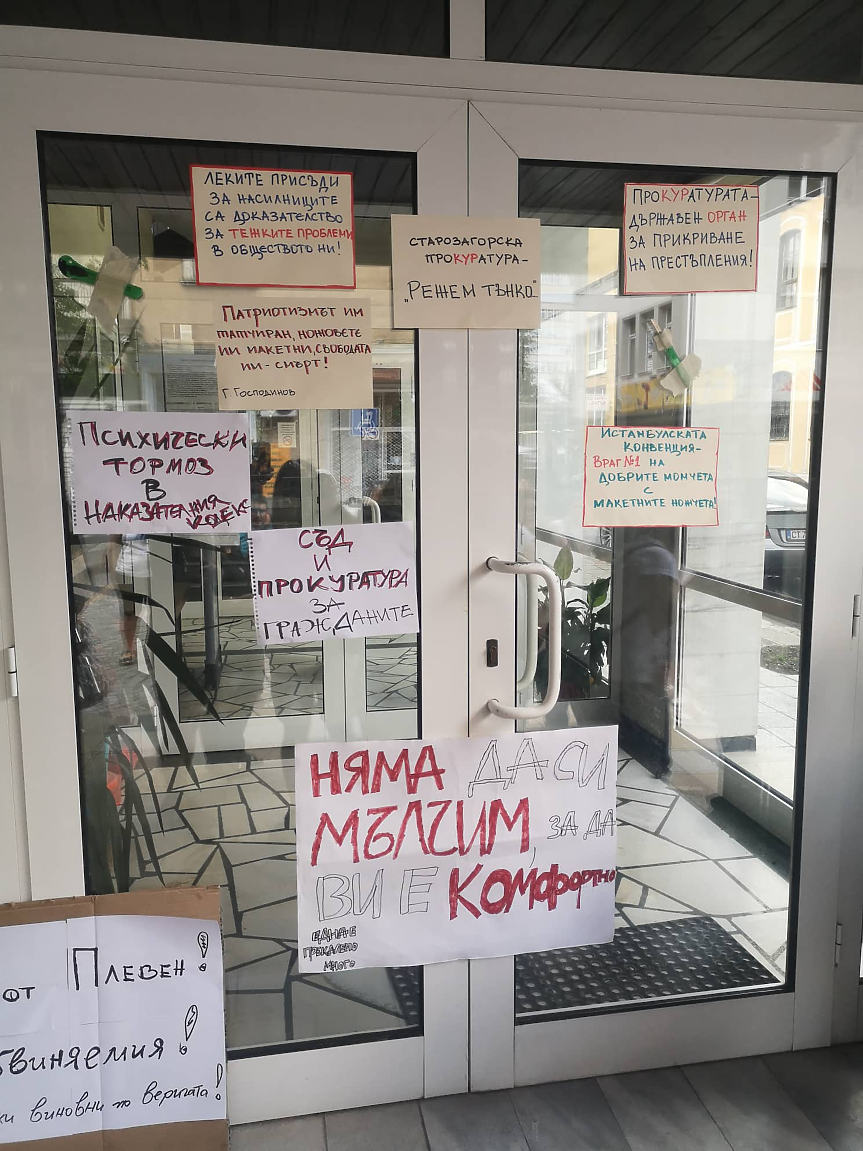 ЛЕКИТЕ ПРИСЪДИ
ЗА НАСИЛНИЦИТЕ
СА ДОКАЗАТЕЛСТВО
ЗА ТЕЖКИТЕ ПРОБЛЕМИ
В ОБЩЕСТВОТО НИ!
СТАРОЗАГОРСКА
ПРОКУРАТУРА-
„РЕЖЕМ ТЪНКО"
ПРОКУРАТУРАТА-
ДЪРЖАВЕН ОРГАН
ЗА ПРИКРИВАНЕ
НА ПРЕСТЪПЛЕНИЯ!
ПАТРИОТИЗМЪТ ИМ
ТАТУИРАН, НОЖОВЕТЕ
ИМ МАКЕТНИ, СВОБОДАТА
ИМ-СМЪРТ!
Г. ГОСПОДИНОВ
ПСИХИЧЕСКИ
ТОРМОЗ
В
НАКАЗАТЕЛНИЯ КОДЕКС
ИСТАНБУЛСКАТА
КОНВЕНЦИЯ-
ВРАГ №1 НА
ДОБРИТЕ МОМЧЕТА
С
МАКЕТНИТЕ НОЖЧЕТА!
СЪД
И
ПРОКУРАТУРА
ЗА
ГРАЖДАНИТЕ
НЯМА ДА СИ
МЪЛЧИМ, ЗА ДА
ВИ Е КОМФОРТНО
ЕДНА Е
ПРЕКАЛЕНО
МНОГО
ОТ ПЛЕВЕН!
ВИНЯЕМИЯ!
КИ ВИНОВНИ ПО ВЕРИГАТА!